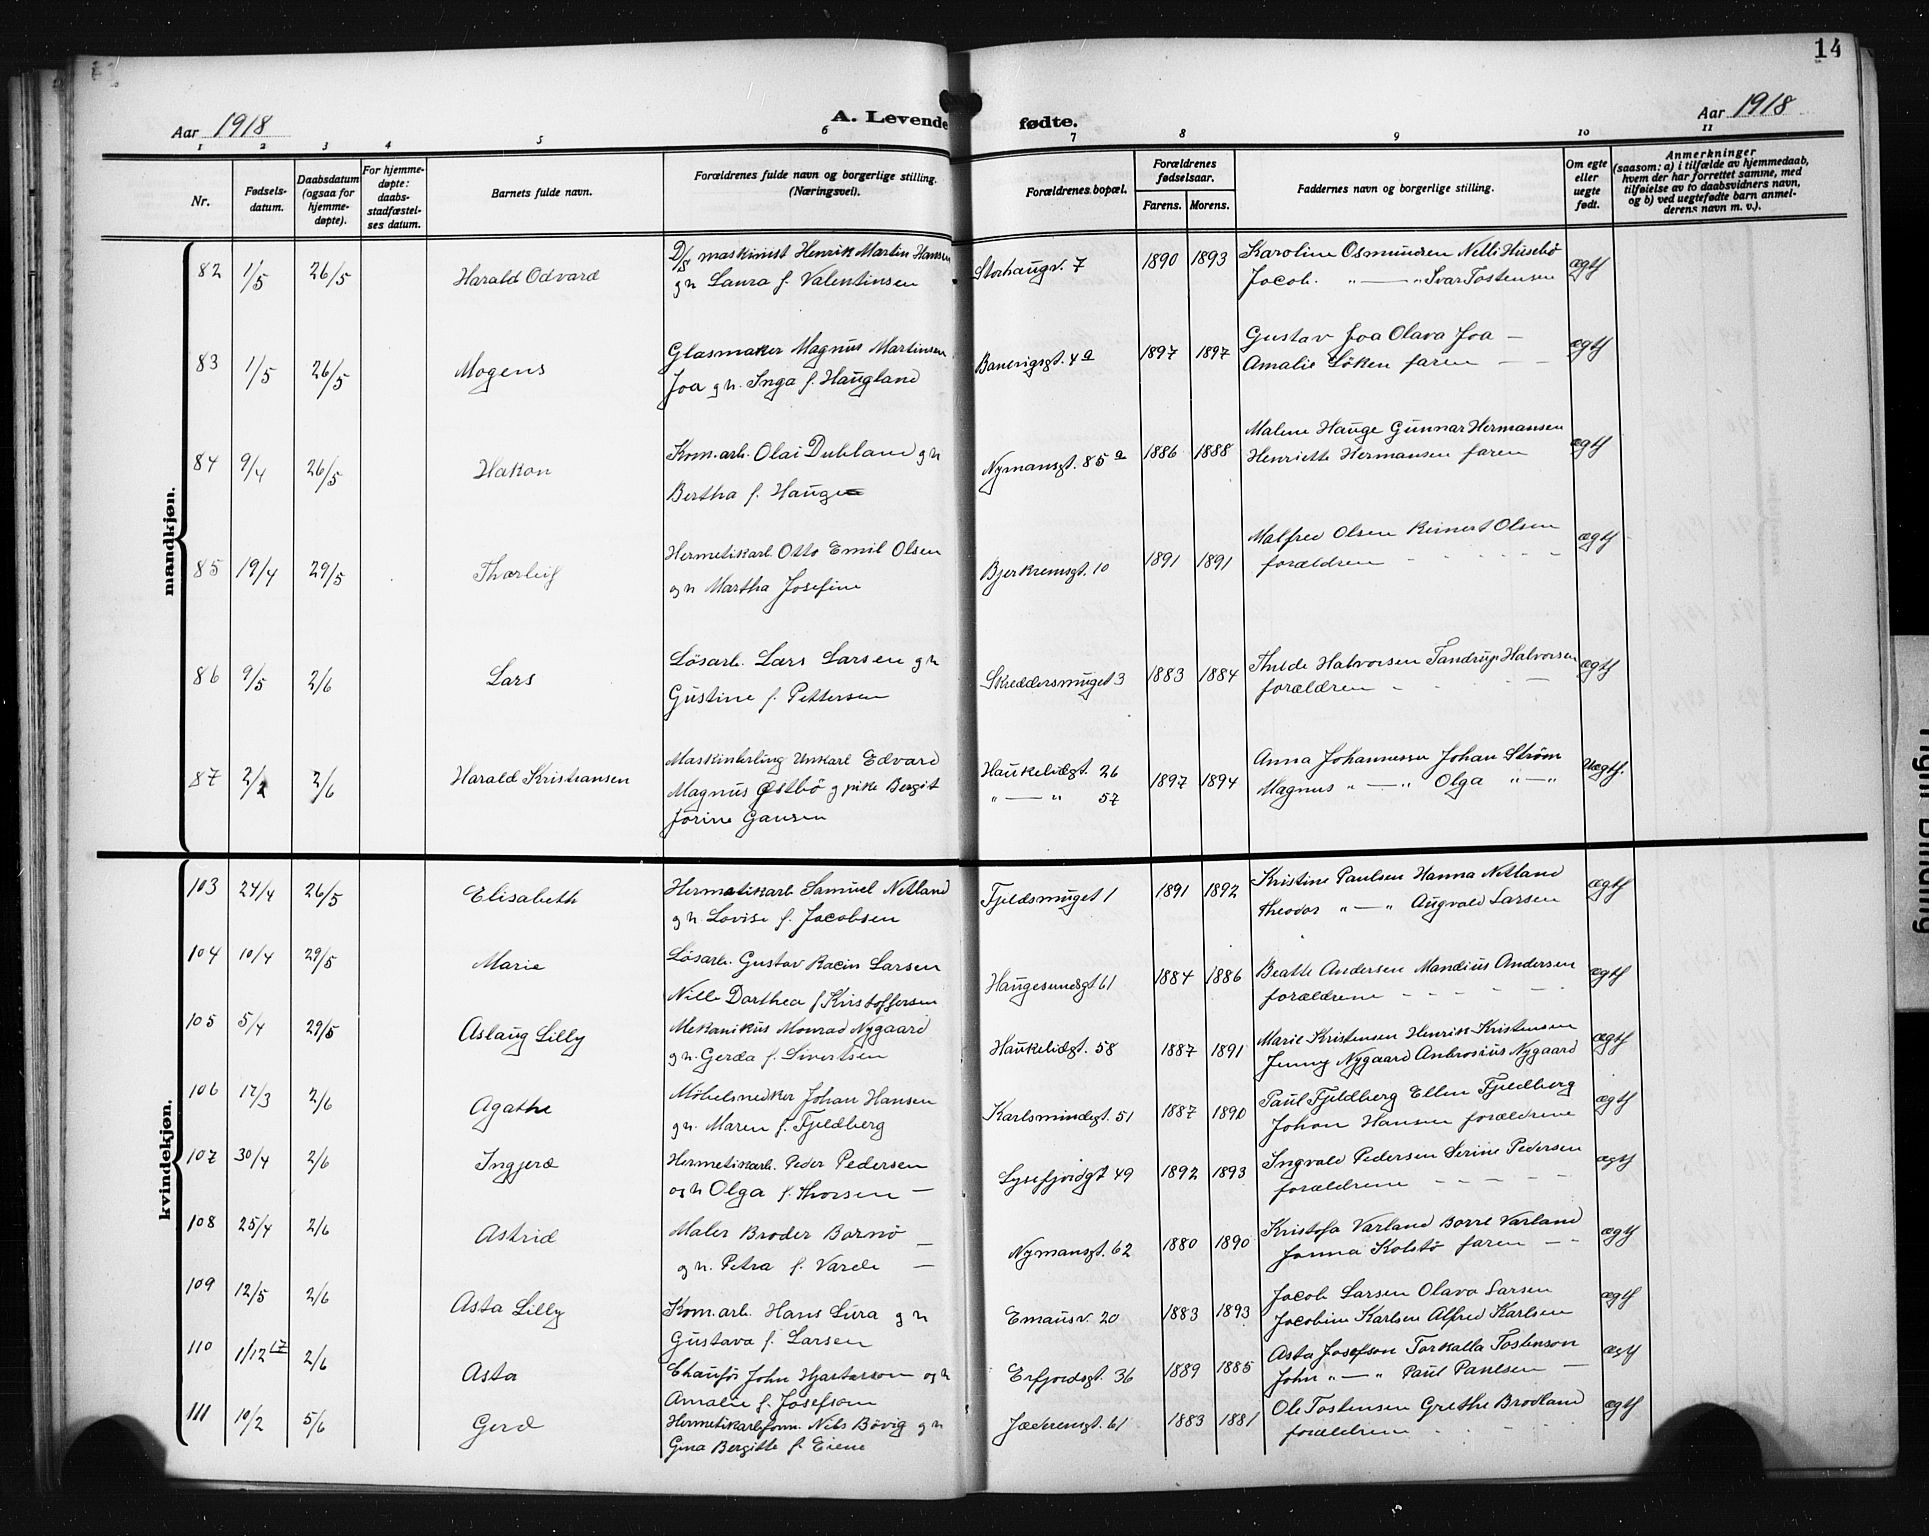 14
Aar 1918 A. Levende fødte. Aar 1918
1 2 3 4 5 6 7 8 9 10 11
Nr.
Fødsels-
datum.
Daabsdatum
(ogsaa for
hjemme-
døpte).
For hjemme-
døpte:
daabs-
stadfæstel-
ses datum.
Barnets fulde navn.
Forældrenes fulde navn og borgerlige stilling.
(Næringsvei).
Forældrenes bopæl.
Forældrenes
fødselsaar.
Farens. Morens.
Faddernes navn og borgerlige stilling.
Om egte
eller
uegte
født.
Anmerkninger
(saasom: a) i tilfælde av hjemmedaab,
hvem der har forrettet samme, med
tilføielse av to daabsvidners navn,
og b) ved uegtefødte barn anmel-
derens navn m. v.).
mandkjøn.
82 1/5 26/5 Harald Odvard
D/S maskinist Henrik Martin Hansen
g h Laura f. Valentinsen
Storhaugv. 7 1890 1893
Karoline Osmundsen Nelli Husebø
Jacob. " — " Svar Tostensen
ægtf
83 1/5 26/5 Mogens
Glasmaker Magnus Martinsen
Joa g h. Inga f. Haugland
Banevigsgt. 4 a 1897 1897
Gustav Joa Olava Joa —
Amalie Løken faren — —
ægtf
84 9/4 26/5 Hakon
Kom.arb. Olai Dubland g h
Bertha f. Hauge
Nymansgt. 85 a 1886 1888
Malene Hauge Gunnar Hermansen
Henriette Hermansen faren
ægtf
85 19/4 29/5 Thorleif
Hermetikarb Otto Emil Olsen
og h Martha Josefine
Bjerkremsgt. 10 1891 1891
Malfred Olsen Reinert Olsen
forældren
ægtf
86 9/5 2/6 Lars
Løsarb. Lars Larsen g h
Gustine f. Pettersen
Skreddersmuget 3 1883 1884
Thilde Halvorsen Tandrup Halvorsen
forældren
ægtf
87 2/6 Harald Kristiansen
Maskinlerling Unkarl Edvard
Magnus Østbø g pike Bergit
Jørine Gausen
Haukelidgt. 26
" — " 57
1897 1894
Anna Johannessen Johan Strøm
Magnus " — " Olga " — "
Uægtf.
kvindekjøn.
103 24/4 26/5 Elisabeth
Hermetikarb Samuel Netland
g h. Lovise f. Jacobsen
Fjeldsmuget 1 1891 1892
Kristine Paulsen Hanna Netland
Theodor " — " Augvald Larsen
ægtf
104 10/4 29/5 Marie
Løsarb. Gustav Racin Larsen
Nille Dorthea f Kristoffersen
Haugesundsgt 61 1884 1886
Beatte Andersen Mandius Andersen
forældrene
ægtf
105 5/4 29/5 Aslaug Lilly
Mekanikus Monrad Nygaard
g h. Gerda f. Sivertsen
Haukelidgt. 58 1887 1891
Marie Kristensen Henrik Kristensen
Jenny Nygaard Anbrosius Nygaard
ægtf
106 17/3 2/6 Agathe
Møbelsnedker Johan Hansen
g h. Maren f. Fjeldberg
Karlsmindegt. 51 1887 1890
Paul Fjeldberg Ellen Fjeldberg
Johan Hansen forældrene
ægtf
107 30/4 2/6 Ingjerd
Hermetikarb. Peder Pedersen
og h Olga f. Thorsen —
Lysefjordgt 49 1892 1893
Ingvald Pedersen Serine Pedersen
forældrene
ægtf
108 25/4 2/6 Astrid
Maler Broder Bornø —
g h. Petra f. Varde —
Nymansgt. 62 1880 1890
Kristofa Varland Borre Varland
Jonna Kolstø faren
ægtf
109 12/5 2/6 Asta Lilly
Kom.arb. Hans Lura g h
Gustava f. Larsen
Emausv. 20 1883 1893
Jacob Larsen Olava Larsen
Jacobine Karlsen Alfred Karlsen
ægtf
110 1/12 17 2/6 Asta
Chaufør John Hjartarson og h
Amalie f. Josefson
Erfjordsgt. 36 1889 1885
Asta Josefson Torkalla Tostenson
John " — " Paul Paulsen —
ægtf
111 10/2 5/6 Gerd
Hermetikarbform. Nils Bøvig g h
Gina Bergitte f. Eiene
Jæderensgt. 61 1883 1881
Ole Tostensen Grethe Brodland
forældrene
ægtf